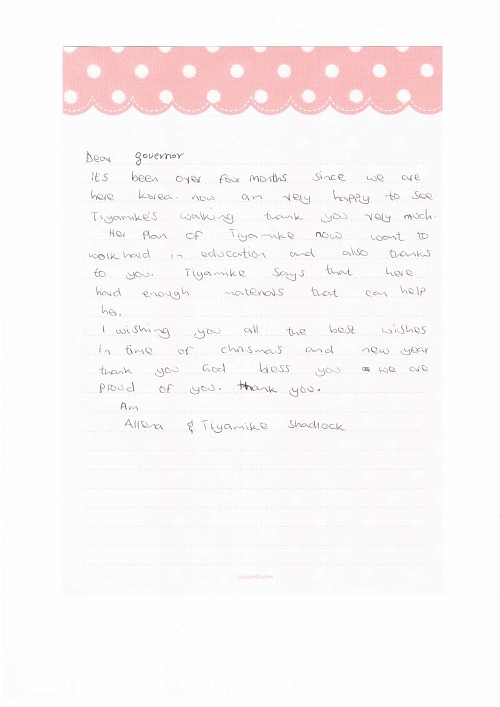 Dear governor
It's been over four months since we are
here Korea. now am very happy to see
Tiyamike's walking thank you very much.
Her Plan of Tiyamike now want to
work hard in education and also thanks
to you. Tiyamike says that here
hard enough materials that can help
her.
I wishing you all the best wishes
in time of christmas and new year
thank you God bless you we are
Proud of you. thank you.
Am
Allena & Tiyamike Shadrock